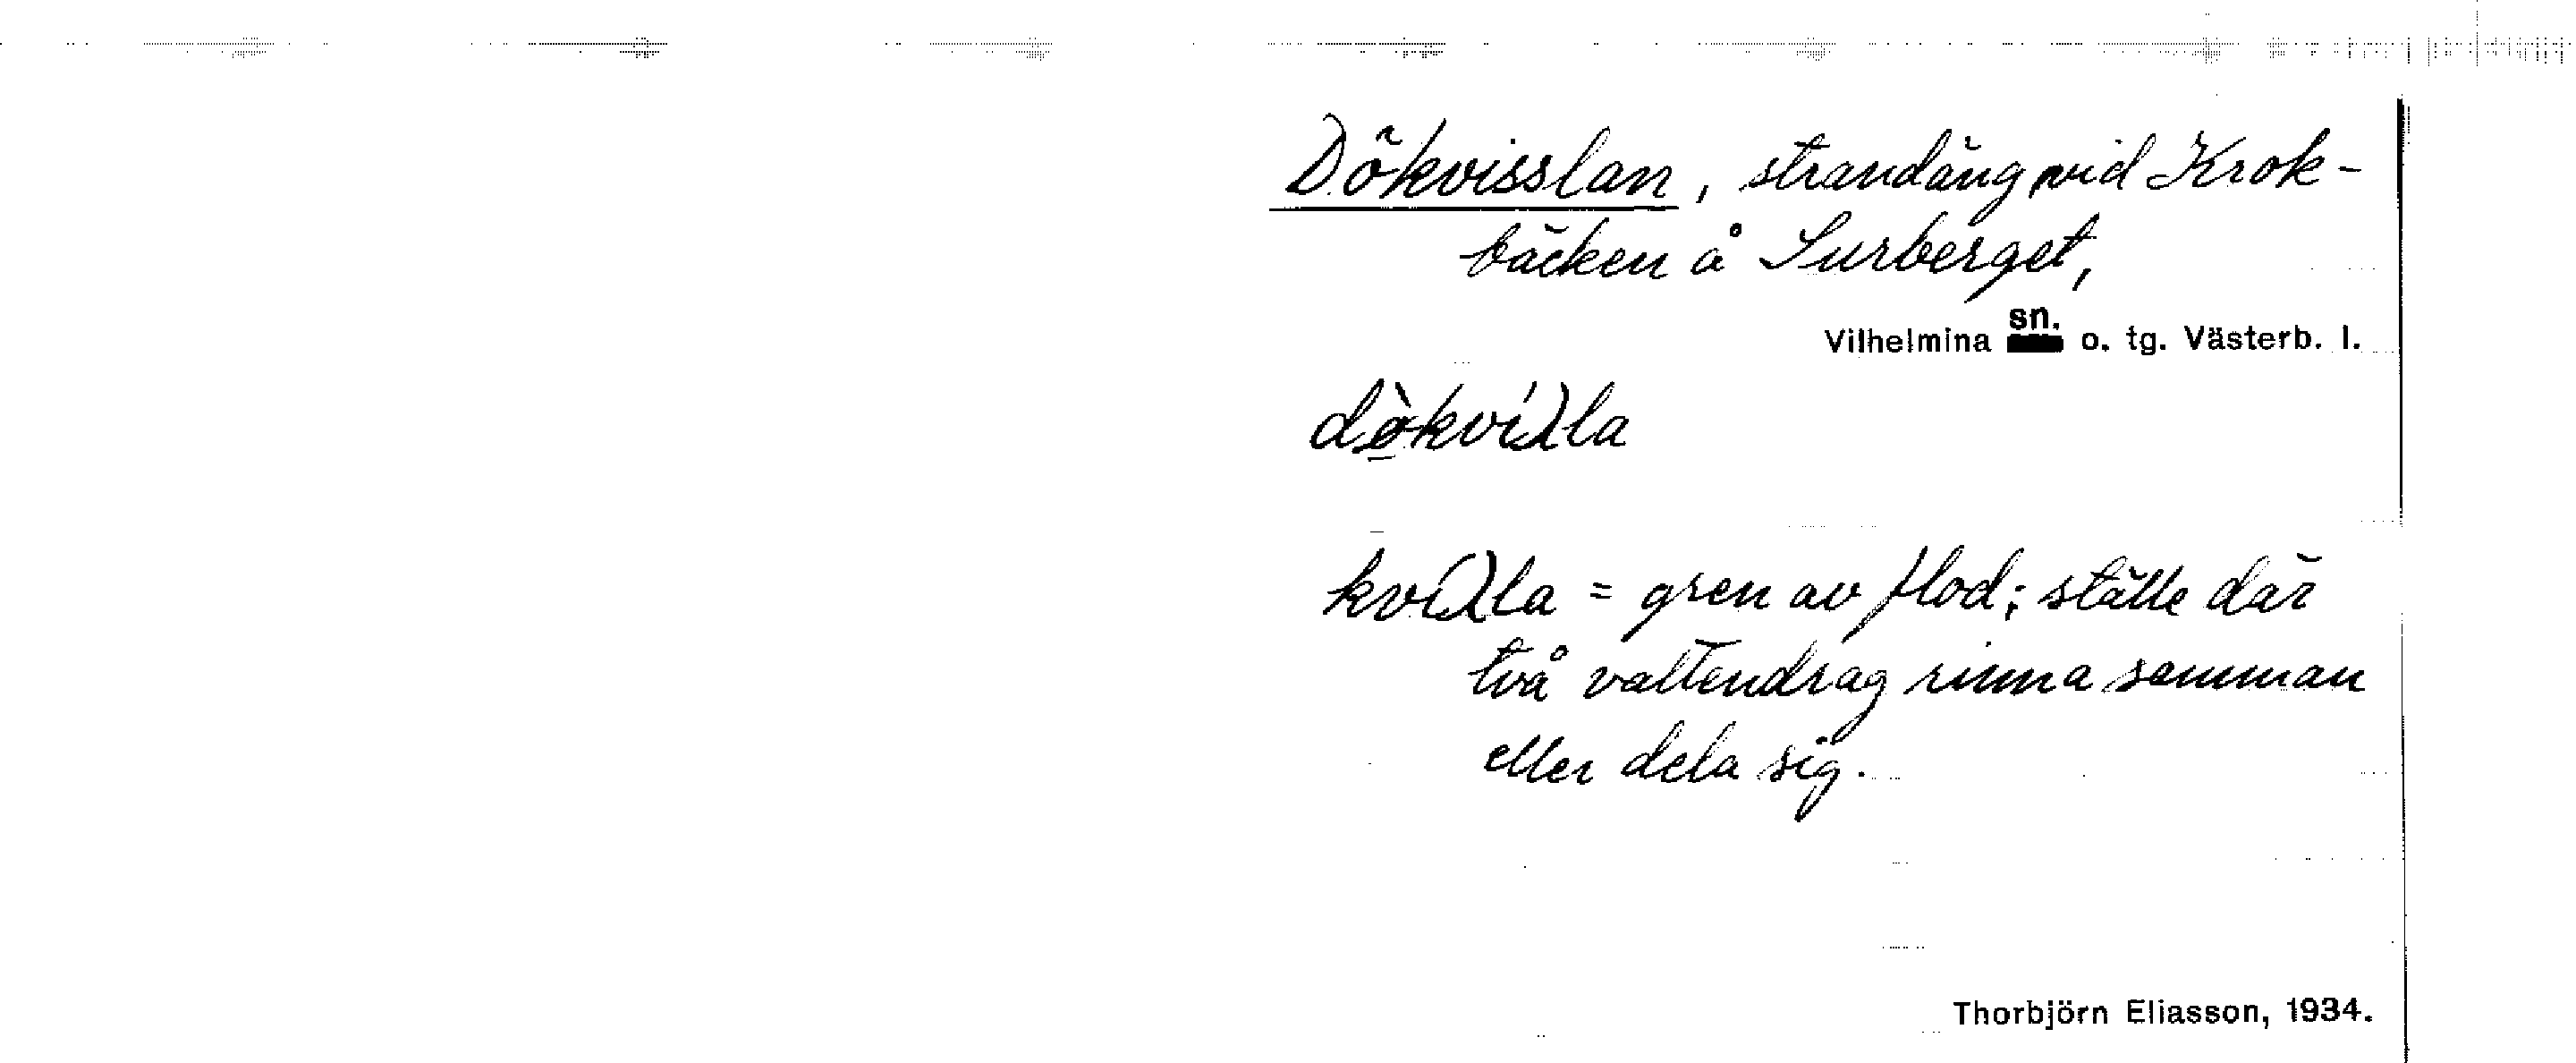 Dökvisslan, strandäng vid Krok-
bäcken å Surberget,
Vilhelmina sn. o. tg. Västerb. l.
dø̀kvíλla
kviλla = gren av flod; ställe där
två vattendrag rinna samman
eller dela sig.
Thorbjörn Eliasson, 1934.